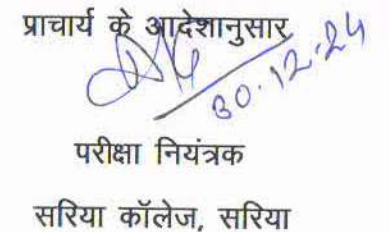 प्राचार्य के आदेशानुसार
30.12.24
परीक्षा नियंत्रक
सरिया कॉलेज, सरिया